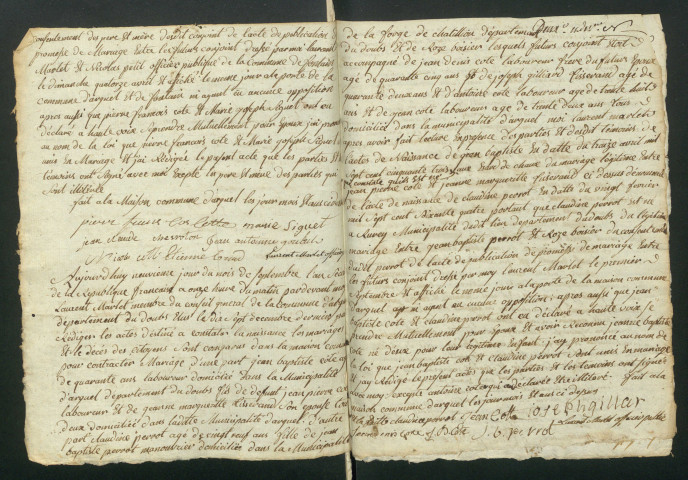 consentement des pere et mère dudit conjoint de l'acte de publication
promesse de Mariage Entre les futurs conjoint dressé par moi laurent
Marlet et Nicolas petit officier publique de la commune de fontain
le dimanche quatorze avril et affiché le meme jour a la porte de la
commune d'arguel et de fontain ni ayant eu aucune opposition
apres aussi que pierre francois coté et Marie joseph Siguet ont eu
déclaré a haute voix se prendre Mutuellement pour Epoux j'ai prononcé
au nom de la loi que pierre francois coté et Marie joseph Siguet
unis en Mariage et j'ai Rédigé le present acte que les parties et
témoins ont signé avec moi Excepté la pere et mere des parties qui
sont illitéré
fait a la Maison commune d'arguel les jour mois et an ci dessus
pierre marie Siguet
jean claude jean antoine
Etienne Laurent Marlet officier
Aujourd'huy neuvieme jour du mois de Septembre l'an
de la République francaise a onze heure du matin par devant moi
Laurent Marlet membre du conseil general de la commune d'arguel
département du doubs Elus le dix Sept decembre dernier pour
Rédiger les actes destiné a constater la naissance les mariages
et le décès des citoyens sont comparus dans la maison commune
pour contracter Mariage d'une part jean baptiste coté agé
de quarante ans laboureur domicilié dans la Municipalité
d'arguel departement du doubs fils de defunt jean pierre coté
laboureur et de jeanne marguerite
deux domicilié dans ladite Municipalité d'arguel d'autre
part claudine perrot agé de vingt neuf ans fille de jean
baptiste perrot manouvrier domicilié dans la Municipalité
de la forge de chatillon département
du doubs et de Roze boisier lesquels futurs conjoint etoit
accompagné de jean denis coté laboureur frere du futur Epoux
agé de quarante cinq ans de joseph gillard agé de
quarante deux ans et d'antoine coté laboureur agé de trente huit
ans et de jean coté laboureur agé de trente deux ans tous
domicilié dans la municipalité d'arguel moi laurent marlet
apres avoir fait lecture en presence des parties et desdit témoins de
l'actes de Naissance de jean baptiste en datte du treize avril mil
sept cent cinquante trois du mariage légitime Entre
jean pierre coté et jeanne marguerite
de l'acte de naissance de claudine perrot En datte du vingt fevrier
mil sept cent soixante quatre portant que claudine perrot est né
a Municipalité dudit lieu departement du doubs du légitime
mariage Entre jean baptiste perrot et Roze boisier du consentement
dudit perrot de l'acte de publication de promesse de mariage Entre
les futurs conjoint dressé par moy Laurent Marlet le premier
Septembre et affiché le meme jour a la porte de la maison commune
d'arguel ny ayant eu aucune oppositions apres aussi que jean
baptiste coté et claudine perrot ont eu déclaré a haute voix se
prendre Mutuellement pour Epoux et avoir Reconnu
coté né deux pour leur légitime Enfant j'ay prononcé au nom de
la loi que jean baptiste coté et claudine perrot sont unis en mariage
et j'ay Rédigé le present acte que les parties et les temoins ont signé
avec moy excepté antoine coté qui a declaré etre illitéré fait a la
maison commune d'arguel les jour mois et an ci dessus
claudine perrot jean Cote Joseph gillar
J B Cote J. b. perrot Laurent Marlet officier public